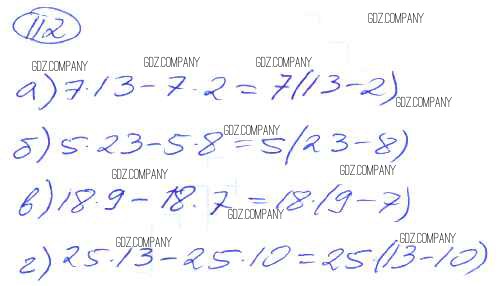 112
GDZ.COMPANY
GDZ.COMPANY GDZ.COMPANY GDZ.COMPANY
а) 7·13-7·2=7(13-2)
GDZ.COMPANY
GDZ.COMPANY
б) 5·23-5·8=5(23-8)
GDZ.COMPANY GDZ.COMPANY
в) 18·9-18·7=18·(9-7)
GDZ.COMPANY
GDZ.COMPANY GDZ.COMPANY
г) 25·13-25·10=25·(13-10)